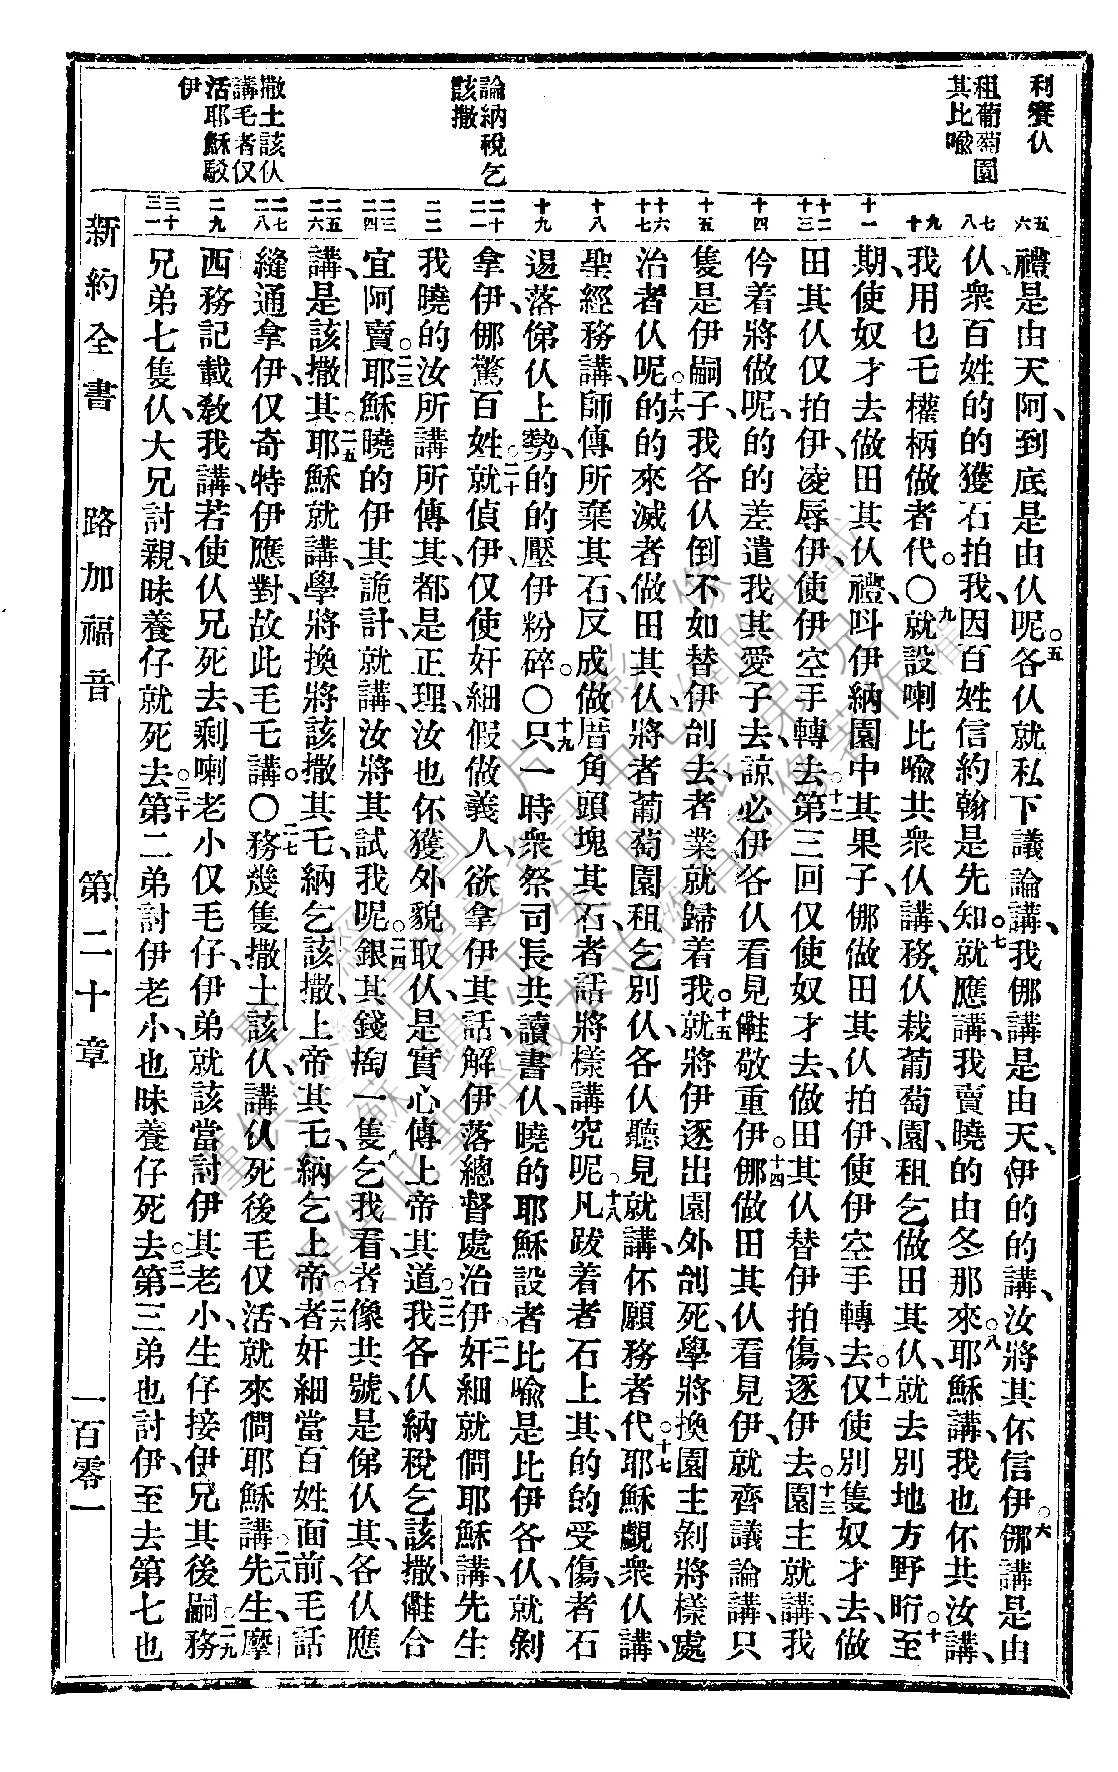 利賽仈
租葡萄園
其比喩
論納稅乞
該撒
撒土該仈
講毛者仅
活耶穌駁
伊
五
六
七
八
九
十
十一
十二
十三
十四
十五
十六
十七
十八
十九
二十
二一
二二
二三
二四
二五
二六
二七
二八
二九
三十
三一
禮是由天阿、到底是由仈呢。五各仈就私下議論講、我㑚講是由天、伊的的講、汝將其伓信伊。六㑚講是由
仈、衆百姓的的獲石拍我、因百姓信約翰是先知。七就應講、我賣曉的由冬那來。八耶穌講、我也伓共汝講、
我用乜乇權柄做者代。〇九就設喇比喩共衆仈講、務仈栽葡萄園、租乞做田其仈、就去別地方野𣍐。十至
期、使奴才去做田其仈禮、呌伊納園中其果子、㑚做田其仈拍伊、使伊空手轉去。十一仅使別隻奴才去、做
田其仈仅拍伊、凌辱伊、使伊空手轉去。十二第三回仅使奴才去、做田其仈替伊拍傷、逐伊去。十三園主就講、我
仱着將做呢、的的差遣我其愛子去、諒必伊各仈看見儺敬重伊。十四㑚做田其仈看見伊、就齊議論講、只
隻是伊嗣子、我各仈倒不如替伊刣去、者業就歸着我。十五就將伊逐出園外刣死、學將換園主剝將樣處
治者仈呢。十六的的來滅者做田其仈、將者葡萄園租乞別仈、各仈聽見就講、伓願務者代。十七耶穌覷衆仈講、
聖經務講、師傳所棄其石、反成做厝角頭塊其石、者話將樣講究呢。十八凡跋着者石上其、的的受傷、者石
遏落俤仈上勢、的的壓伊粉碎。〇十九只一時衆祭司長共讀書仈、曉的耶穌設者比喩是比伊各仈、就剝
拿伊、㑚驚百姓。二十就偵伊、仅使奸細假做義人、欲拿伊其話、解伊落總督處治伊。二一奸細就僩耶穌講、先生
我曉的汝所講所傳其、都是正理、汝也伓獲外貌取仈、是實心傳上帝其道。二二我各仈納稅乞該撒、儺合
宜阿賣。二三耶穌曉的伊其詭計、就講、汝將其試我呢。二四銀其錢掏一隻乞我看、者像共號是俤仈其、各仈應
講、是該撒其。二五耶穌就講、學將換將該撒其乇、納乞該撒、上帝其乇、納乞上帝。二六者奸細當百姓面前、毛話
縫通拿伊、仅奇特伊應對、故此毛乇講。〇二七務幾隻撒土該仈、講仈死後毛仅活、就來僩耶穌講。二八先生、摩
西務記載敎我講、若使仈兄死去、剩喇老小仅毛仔、伊弟就該當討伊其老小、生仔接伊兄其後嗣。二九務
兄弟七隻仈、大兄討親、昧養仔就死去。三十第二弟討伊老小、也昧養仔死去。三一第三弟也討伊、至去第七也
新約全書
路加福音
第二十章
一百零一